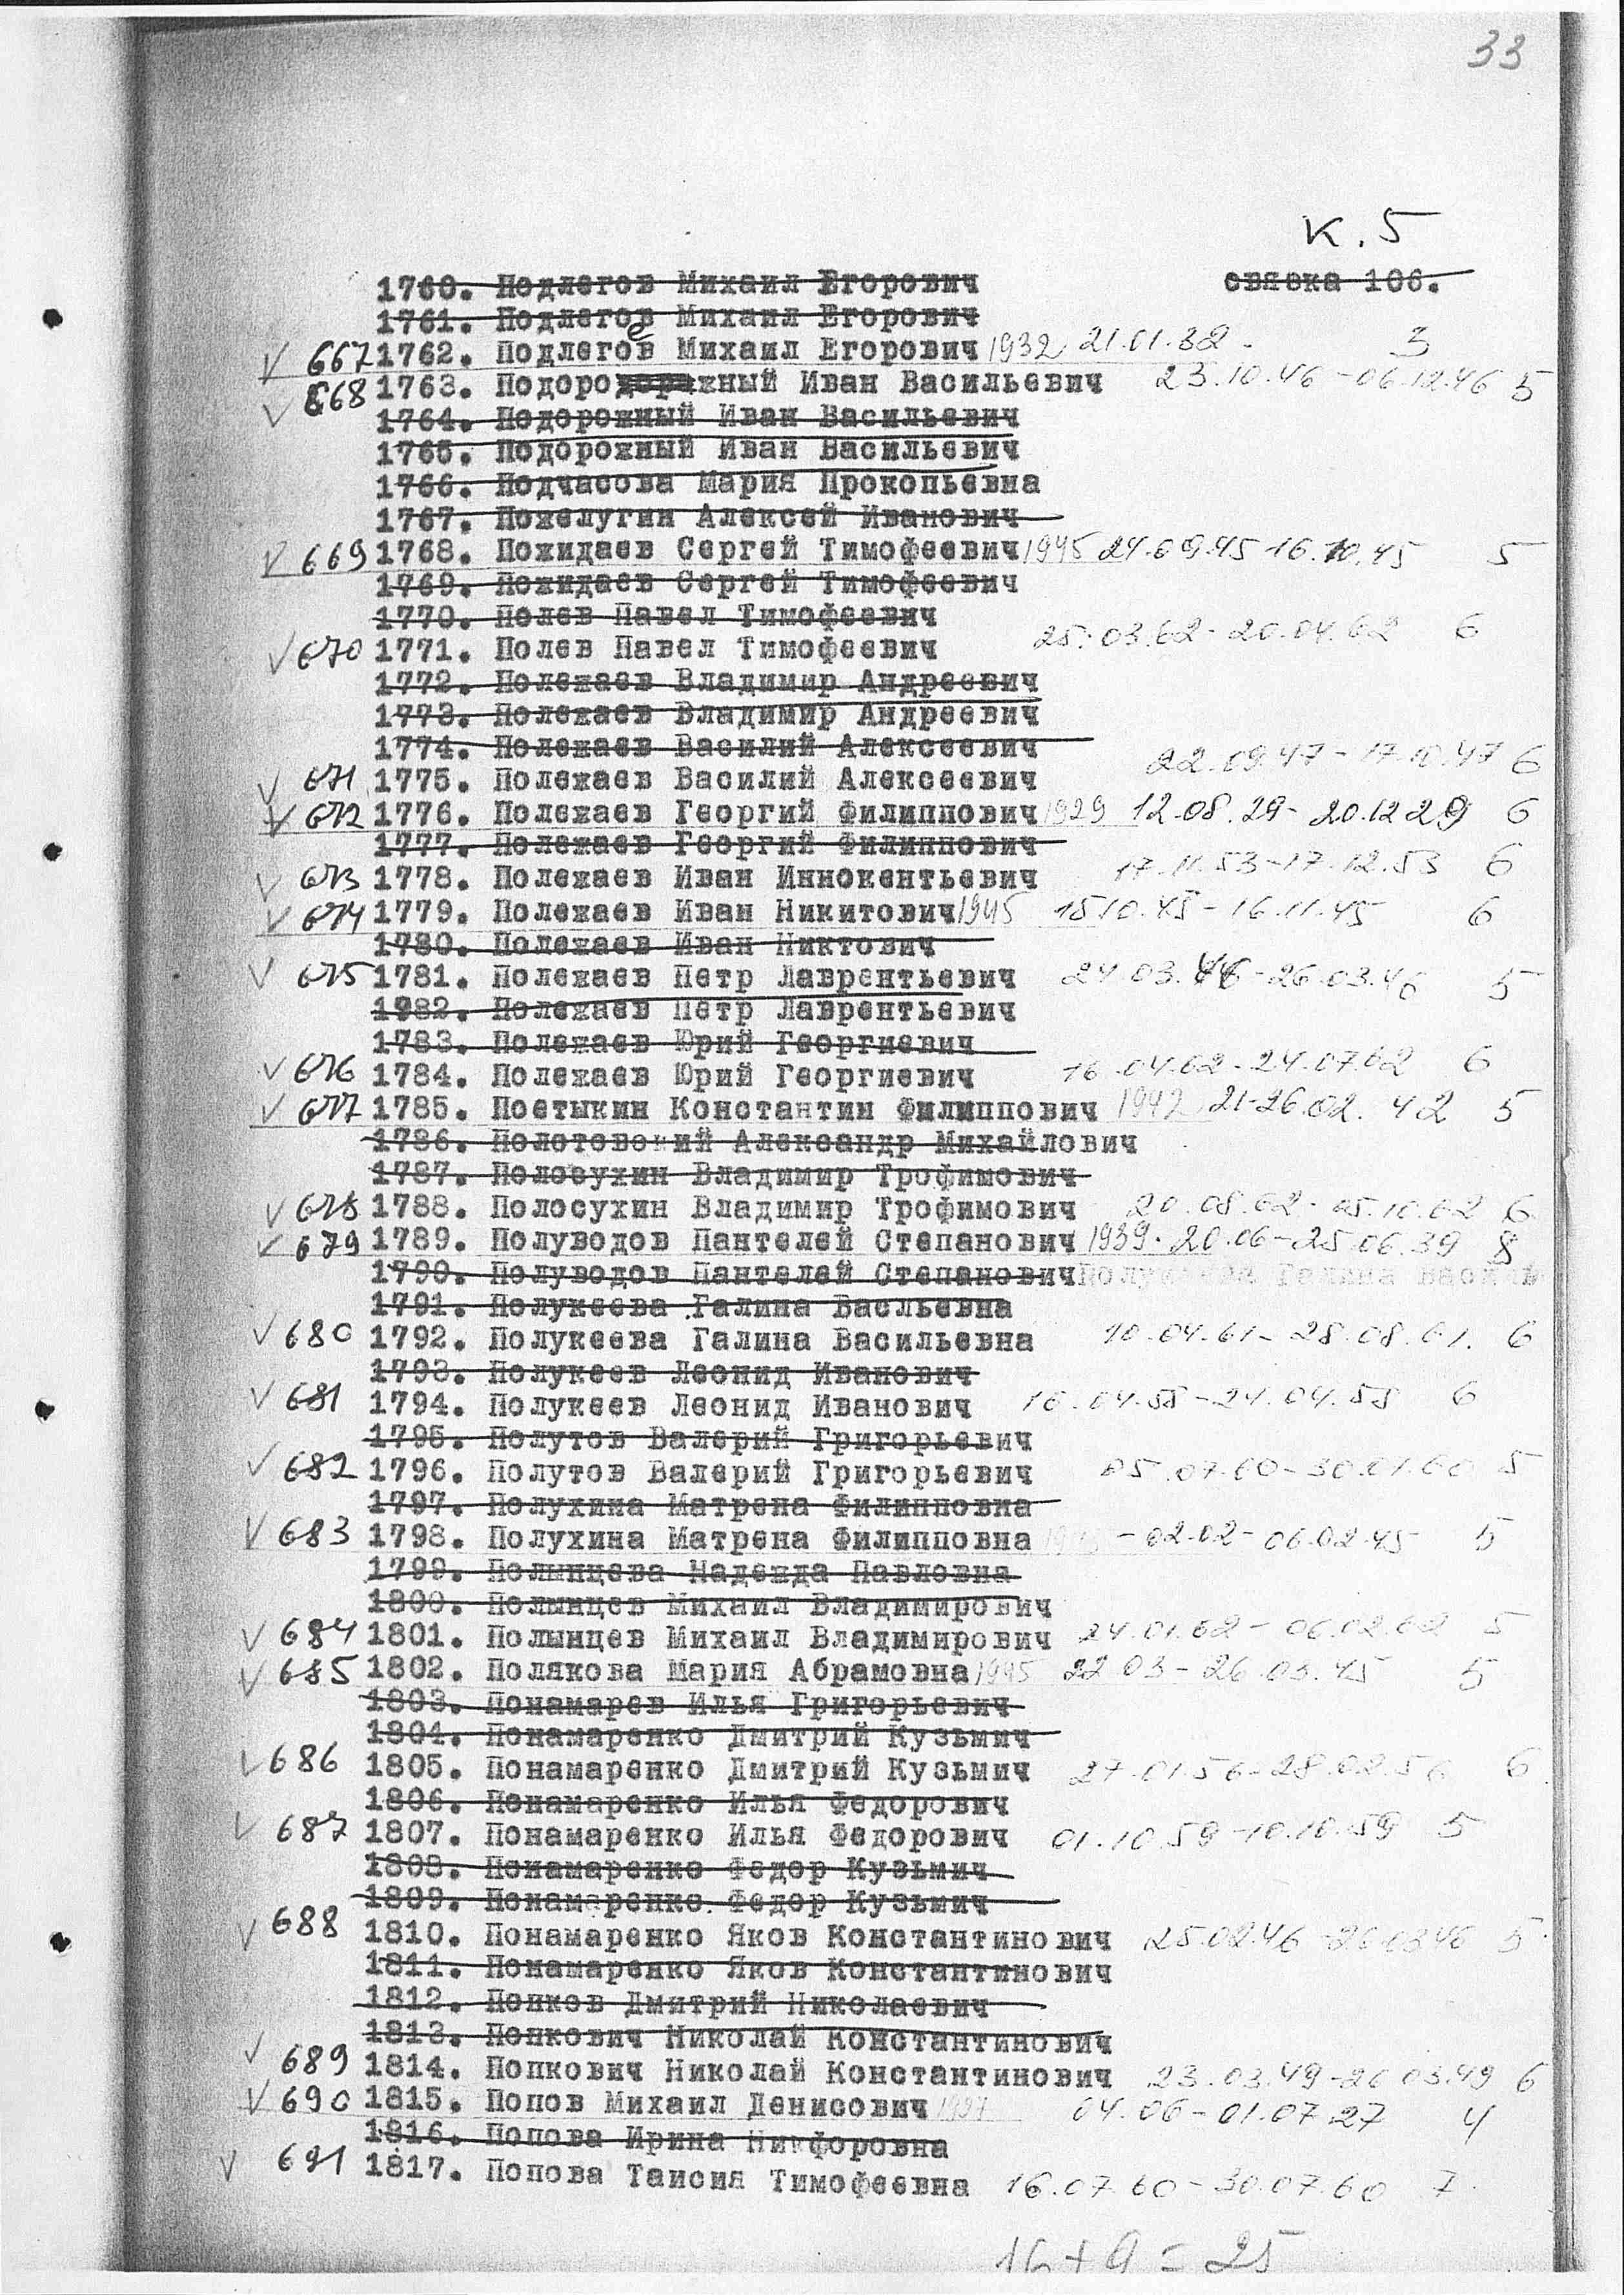 33
к. 5
1760. Подлегов Михаил Егорович связка 106.
1761. Подлегов Михаил Егорович
V 667 1762. Подлегов Михаил Егорович 1932 21.01.32 - 3
V 668 1763. Подорожный Иван Васильевич 23.10.46-06.12.46 5
1764. Подорожный Иван Васильевич
1765. Подорожный Иван Васильевич
1766. Подчасова Мария Прокопьевна
1767. Пожелугин Алексей Иванович
V 669 1768. Пожидаев Сергей Тимофеевич 1945 24.09.45 16.10.45 5
1769. Пожидаев Сергей Тимофеевич
1770. Полев Павел Тимофеевич
V 670 1771. Полев Павел Тимофеевич 25.03.62-20.04.62 6
1772. Полежаев Владимир Андреевич
1773. Полежаев Владимир Андреевич
1774. Полежаев Василий Алексеевич
V 671 1775. Полежаев Василий Алексеевич 22.09.47-17.10.47 6
V 672 1776. Полежаев Георгий Филиппович 1929 12.08.29-20.12 29 6
1777. Полежаев Георгий Филиппович
V 673 1778. Полежаев Иван Иннокентьевич 17.11.53-17.12.53 6
V 674 1779. Полежаев Иван Никитович 1945 15.10.45-16.11.45 6
1780. Полежаев Иван Никтович
V 675 1781. Полежаев Петр Лаврентьевич 24.03.46-26.03.46 5
1982. Полежаев Петр Лаврентьевич
1783. Полежаев Юрий Георгиевич
V 676 1784. Полежаев Юрий Георгиевич 16.04.62-24.07.62 6
V 677 1785. Поетыкин Константин Филиппович 1942 21-26.02.42 5
1786. Полотовский Александр Михайлович
1787. Полосухин Владимир Трофимович
V 678 1788. Полосухин Владимир Трофимович 20.08.62-05.10.62 6
V 679 1789. Полуводов Пантелей Степанович 1939. 20.06-25.06.39 8
1790. Полуводов Пантелей Степанович
1791. Полукеева Галина Васльевна
V 680 1792. Полукеева Галина Васильевна 10.04.61-28.08.61. 6
1793. Полукеев Леонид Иванович
V 681 1794. Полукеев Леонид Иванович 16.04.58-24.04.58 6
1795. Полутов Валерий Григорьевич
V 682 1796. Полутов Валерий Григорьевич 05.07.60-30.01.60 5
1797. Полухина Матрена Филипповна
V 683 1798. Полухина Матрена Филипповна - 02.02-06.02.45 5
1799. Полынцева Надежда Павловна
1800. Полынцев Михаил Владимирович
V 684 1801. Полынцев Михаил Владимирович 24.01.62-06.02.62 5
V 685 1802. Полякова Мария Абрамовна 1945 22 03-26.03.45 5
1803. Понамарев Илья Григорьевич
1804. Понамаренко Дмитрий Кузьмич
V 686 1805. Понамаренко Дмитрий Кузьмич 27.01.56-28.02.56 6
1806. Понамаренко Илья Федорович
V 687 1807. Понамаренко Илья Федорович 01.10.59-10.10.59 5
1808. Понамаренко Федор Кузьмич
1809. Понамаренко Федор Кузьмич
V 688 1810. Понамаренко Яков Константинович 25.02.46-26.03.46 5
1811. Понамаренко Яков Константинович
1812. Попков Дмитрий Николаевич
1813. Попкович Николай Константинович
V 689 1814. Попкович Николай Константинович 23.03.49-26 03.49 6
V 690 1815. Попов Михаил Денисович 1927 04.06-01.07.27 4
1816. Попова Ирина Никфоровна
V 691 1817. Попова Таисия Тимофеевна 16.07.60-30.07.60 7
16+9=25